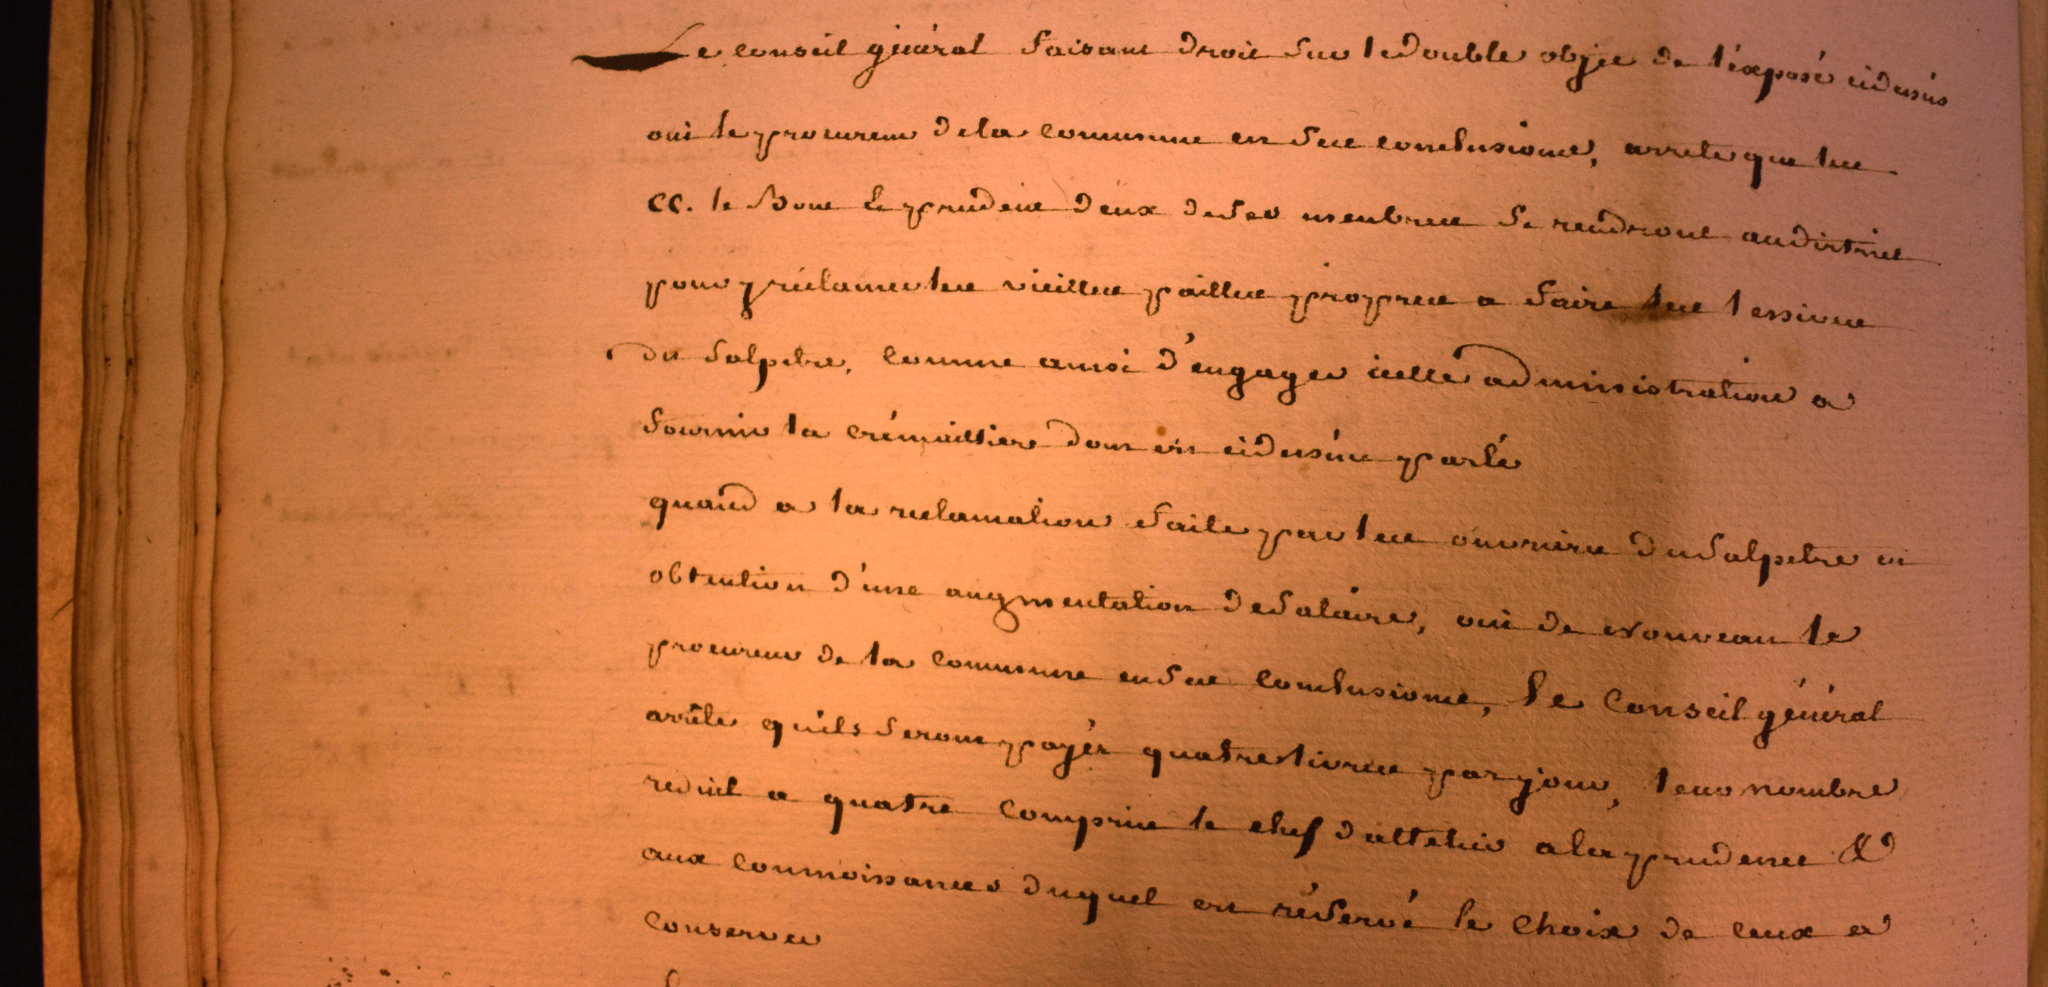 Le conseil général faisant droit sur le double objet de l'éxposé cidessus
oui le procureur de la commune en ses conclusions, arrete que les
CC. le Bon & prudent deux de ses membres se rendront au district
pour y réclamer les vieilles pailles propres a faire les lessives
du salpetre, comme aussi d'engager icelle administration a
fournir la crémailliere dont est cidessus parlé
quand a la reclamation faite par les ouvriers du salpetre en
obtention d'une augmentation de salaire, oui de nouveau le
procureur de la commune en ses conclusions, le Conseil général
arrête qu'ils seront payés quatre livres par jour, leur nombre
reduit a quatre compris le chef d'attelier a la prudence &
aux connoissances duquel est réservé le choix de ceux a
conserver